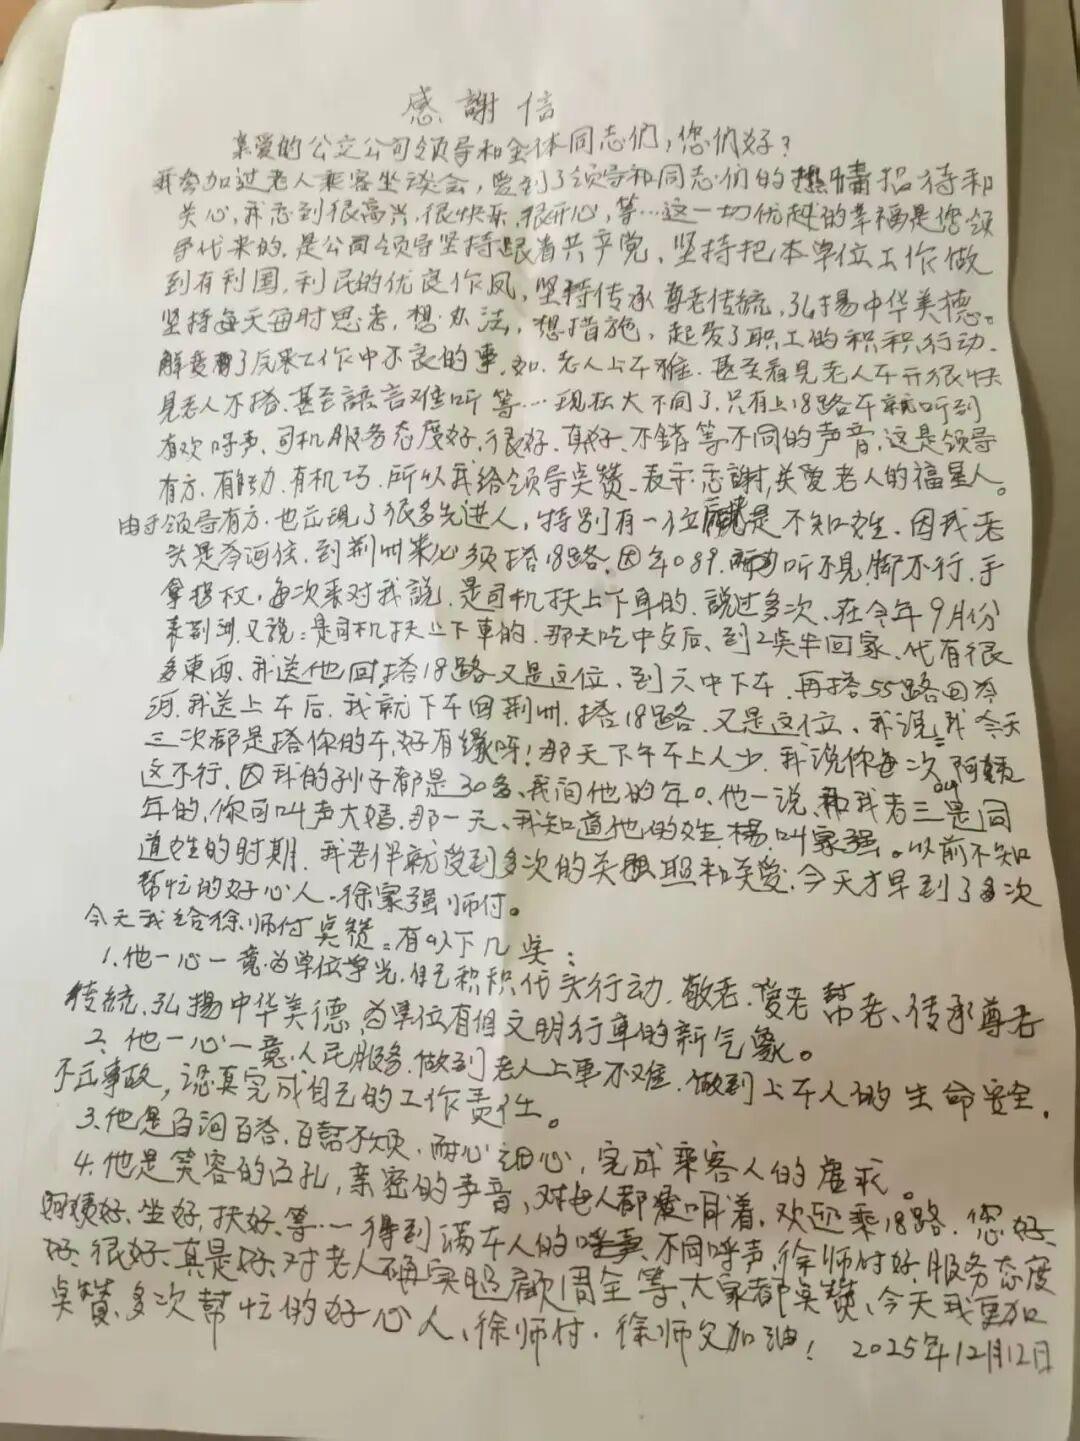 感謝信
亲爱的公交公司领导和全体同志们，您们好？
我参加过老人乘客坐谈会，受到了领导和同志们的热情招待和
关心，我志到很高兴，很快乐，很开心，等…这一切优越的幸福是您领
导代来的，是公司领导坚持跟着共产党，坚持把本单位工作做
到有利国，利民的优良作风，坚持传承尊老传统，弘揚中华美德。
坚持每天每时思考，想办法，想措施，起发了职工的积积行动，
解变了反来工作中不良的事，如，老人上车难，甚至看見老人车开很快
見老人不搭，甚至語言难听等…现在大不同了，只有上18路车就听到
有欢呼声，司机服务态度好，很好，真好，不錯等不同的声音，这是领导
有方，有能动，有机巧，所以我给领导奌赞，表示志謝，关爱老人的福星人。
由于领导有方，也出现了很多先进人，特别有一位就是不知姓，因我老
头是岑河住，到荆州来必须搭18路，因年089，听不見，脚不行，手
拿拐杖，每次来对我説，是司机扶上下車的，説过多次，在今年9月份
来荆州又说：是司机扶上下車的，那天吃中反后，到2奌半回家，代有很
多東西，我送他回搭18路又是这位，到六中下车，再搭55路回岑
河，我送上车后，我就下车回荆州，搭18路，又是这位，我说：我今天
三次都是搭你的车，好有缘呀！那天下午车上人少，我说你每次阿姨
这不行，因我的孙子都是30多，我问他的年。他一说，和我老三是同
年的，你可叫声大媽，那一天，我知道他的姓，楊，叫家强。以前不知
道姓的时期，我老伴就受到多次的关照和关爱，今天才早到了多次
帮忙的好心人，徐家强师付。
今天我给徐师付奌赞，有以下几奌：
1.他一心一意为单位争光，自己积积代头行动，敬老，爱老，幫老、传承尊老
传统，弘揚中华美德，为单位有借文明行車的新气象。
2、他一心一意，人民服务，做到老人上車不难，做到上车人的生命安全，
不正事故，認真完成自己的工作责任。
3.他是百洞百答，百話不烦，耐心细心，完成乘客人的虚求。
4.他是笑容的臼孔，亲密的声音，对老人都喊着，欢迎乘18路，您好，
阿姨好，坐好，扶好，等…得到满车人的呼声，不同呼声，徐师付好，服务态度
好，很好，真是好，对老人确实照顧周全等，大家都奌赞，今天我更加
奌赞，多次幫忙的好心人，徐师付，徐师父加油！2025年12月12日